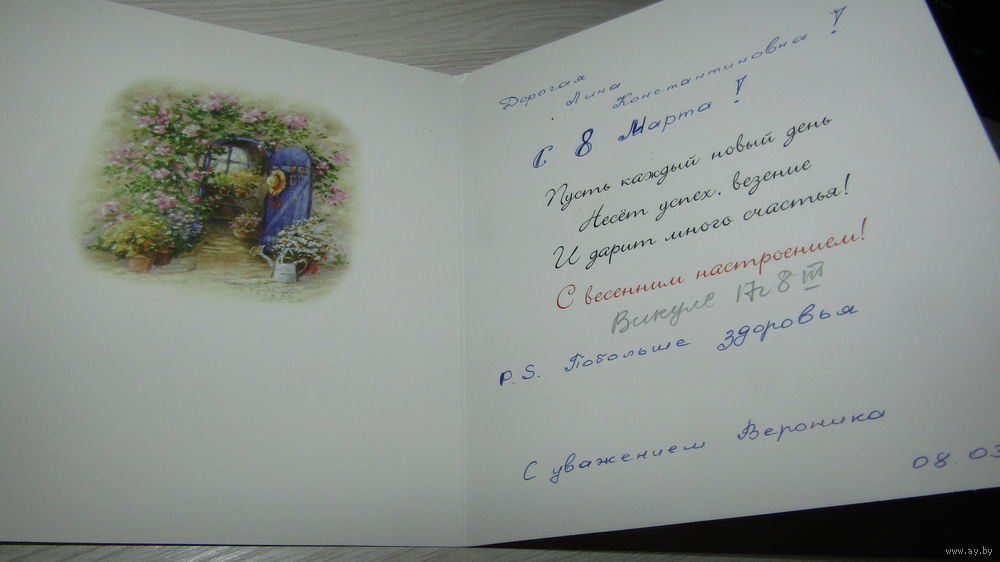 Дорогая
Лина
Константиновна !
С 8 Марта !
Пусть каждый новый день
Несёт успех, везение
И дарит много счастья!
С весенним настроением!
Викуле 17г 8 III
P.S. Побольше здоровья
С уважением Вероника
08.03
www.ay.by